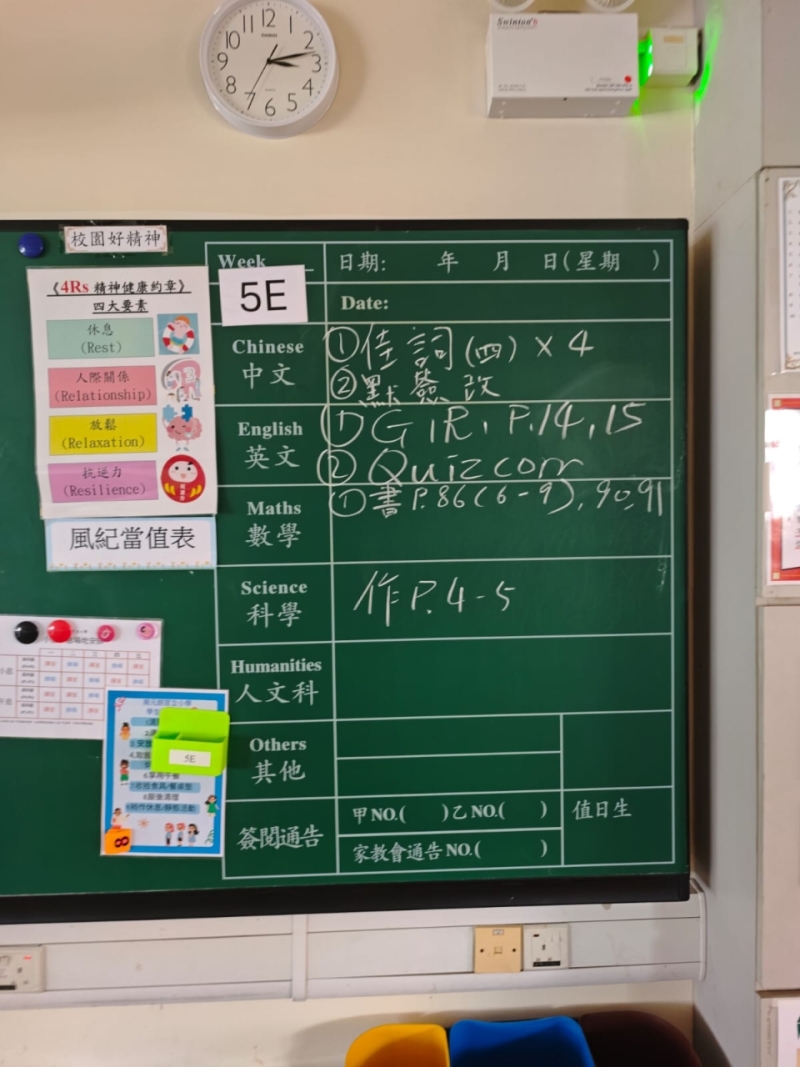 12
1
2
3
4
5
6
7
8
9
10
11
CASIO
Swinton's
校園好精神
《4Rs 精神健康約章》
四大要素
休息
(Rest)
人際關係
(Relationship)
放鬆
(Relaxation)
抗逆力
(Resilience)
風紀當值表
Week
日期: 年 月 日(星期 )
5E
Date:
Chinese
中文
①佳詞(四)×4
②默簽改
English
英文
① G I R, P.14, 15
② Quizcorr
Maths
數學
①書P.86(6-9), 90, 91
Science
科學
作P.4-5
Humanities
人文科
Others
其他
簽閱通告
甲NO.( )乙NO.( )
家教會通告NO.( )
值日生
5E
6.享用午餐
7.收拾食具/餐桌墊
8.飯後清理
8